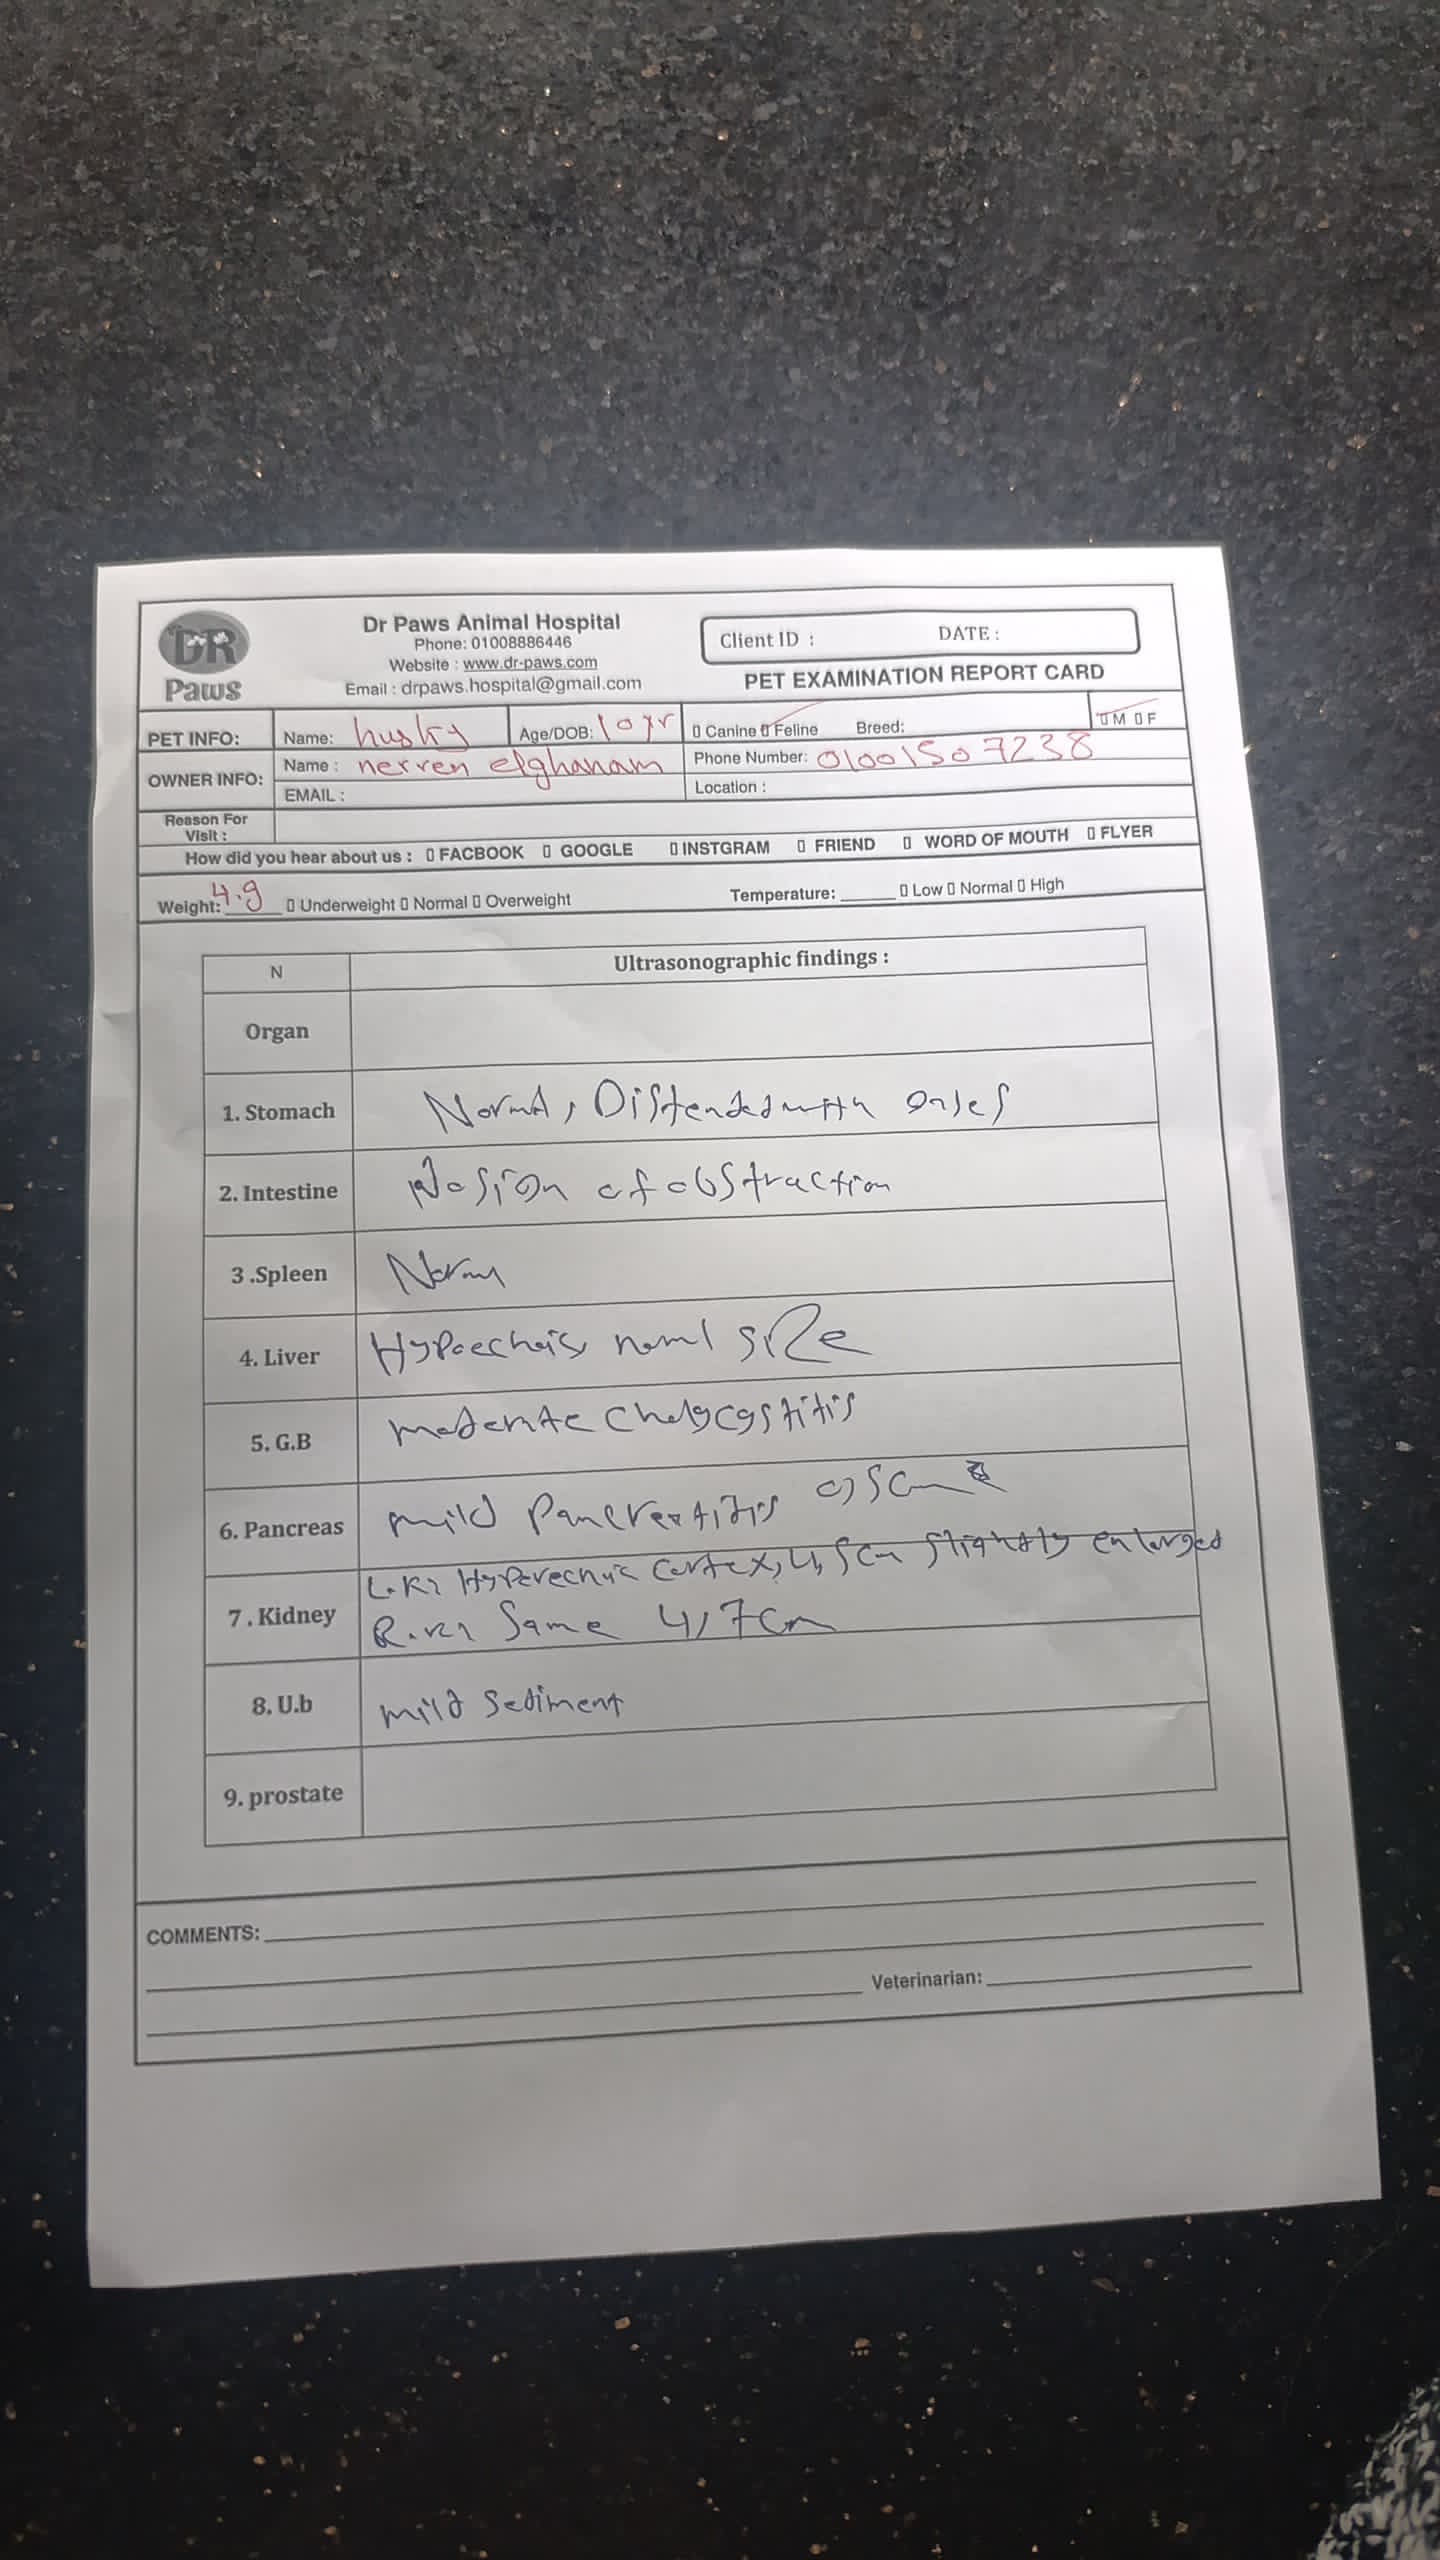 DR Paws
Dr Paws Animal Hospital
Phone: 01008886446
Website : www.dr-paws.com
Email : drpaws.hospital@gmail.com
Client ID : DATE :
PET EXAMINATION REPORT CARD
PET INFO: Name: husky Age/DOB: 10 yr ▯ Canine ▯ Feline Breed: ▯ M ▯ F
OWNER INFO: Name : nerven elghanam Phone Number: 01001507238
EMAIL : Location :
Reason For
Visit :
How did you hear about us : ▯ FACBOOK ▯ GOOGLE ▯ INSTGRAM ▯ FRIEND ▯ WORD OF MOUTH ▯ FLYER
Weight: 4.9 ▯ Underweight ▯ Normal ▯ Overweight Temperature: ______ ▯ Low ▯ Normal ▯ High
N Ultrasonographic findings :
Organ
1. Stomach Normal, Distended with
2. Intestine No sign of obstruction
3 .Spleen Norm
4. Liver size
5. G.B moderate
6. Pancreas mild
7 . Kidney cortex, 4,5cm slightly enlarged
Same 4,7cm
8. U.b mild sediment
9. prostate
COMMENTS:
Veterinarian: